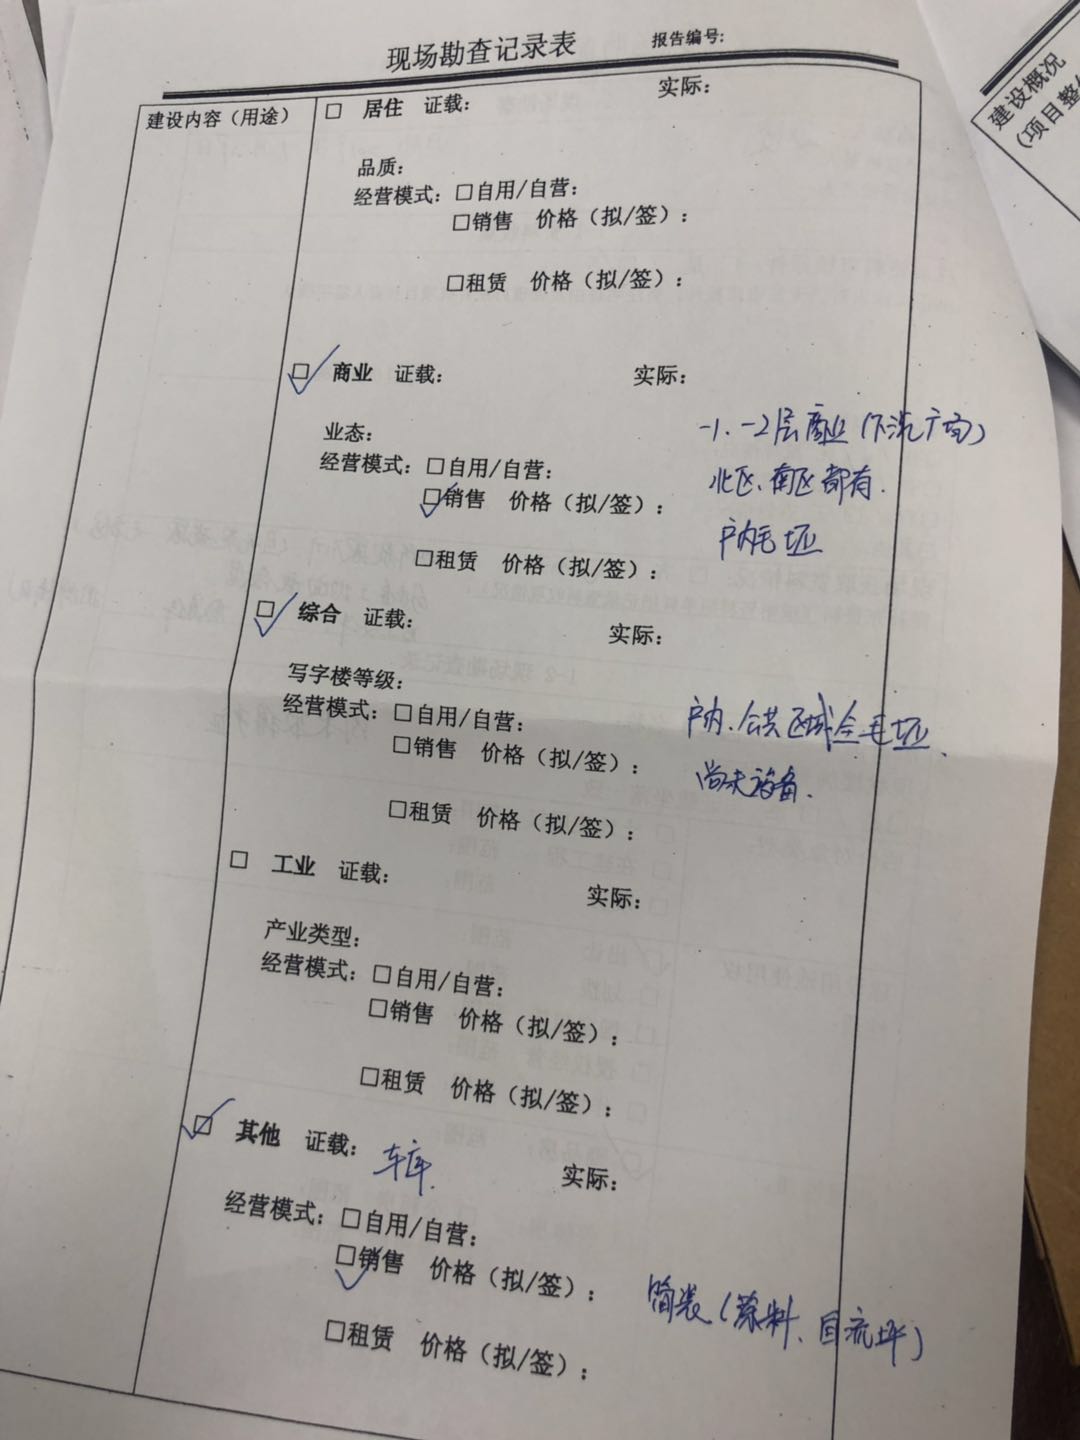 现场勘查记录表 报告编号:
建设内容（用途）
□ 居住 证载: 实际:
品质:
经营模式: □自用/自营:
□销售 价格（拟/签）:
□租赁 价格（拟/签）:
□ 商业 证载: 实际:
业态: -1、-2层商业（下沉广场）
经营模式: □自用/自营: 北区、南区都有.
□销售 价格（拟/签）:
户内毛坯
□租赁 价格（拟/签）:
□ 综合 证载: 实际:
写字楼等级:
经营模式: □自用/自营: 户内、公共区域全毛坯、
□销售 价格（拟/签）: 尚未设备.
□租赁 价格（拟/签）:
□ 工业 证载: 实际:
产业类型:
经营模式: □自用/自营:
□销售 价格（拟/签）:
□租赁 价格（拟/签）:
□ 其他 证载: 车库. 实际:
经营模式: □自用/自营:
□销售 价格（拟/签）: 简装（涂料、自流坪）
□租赁 价格（拟/签）:
建设概况